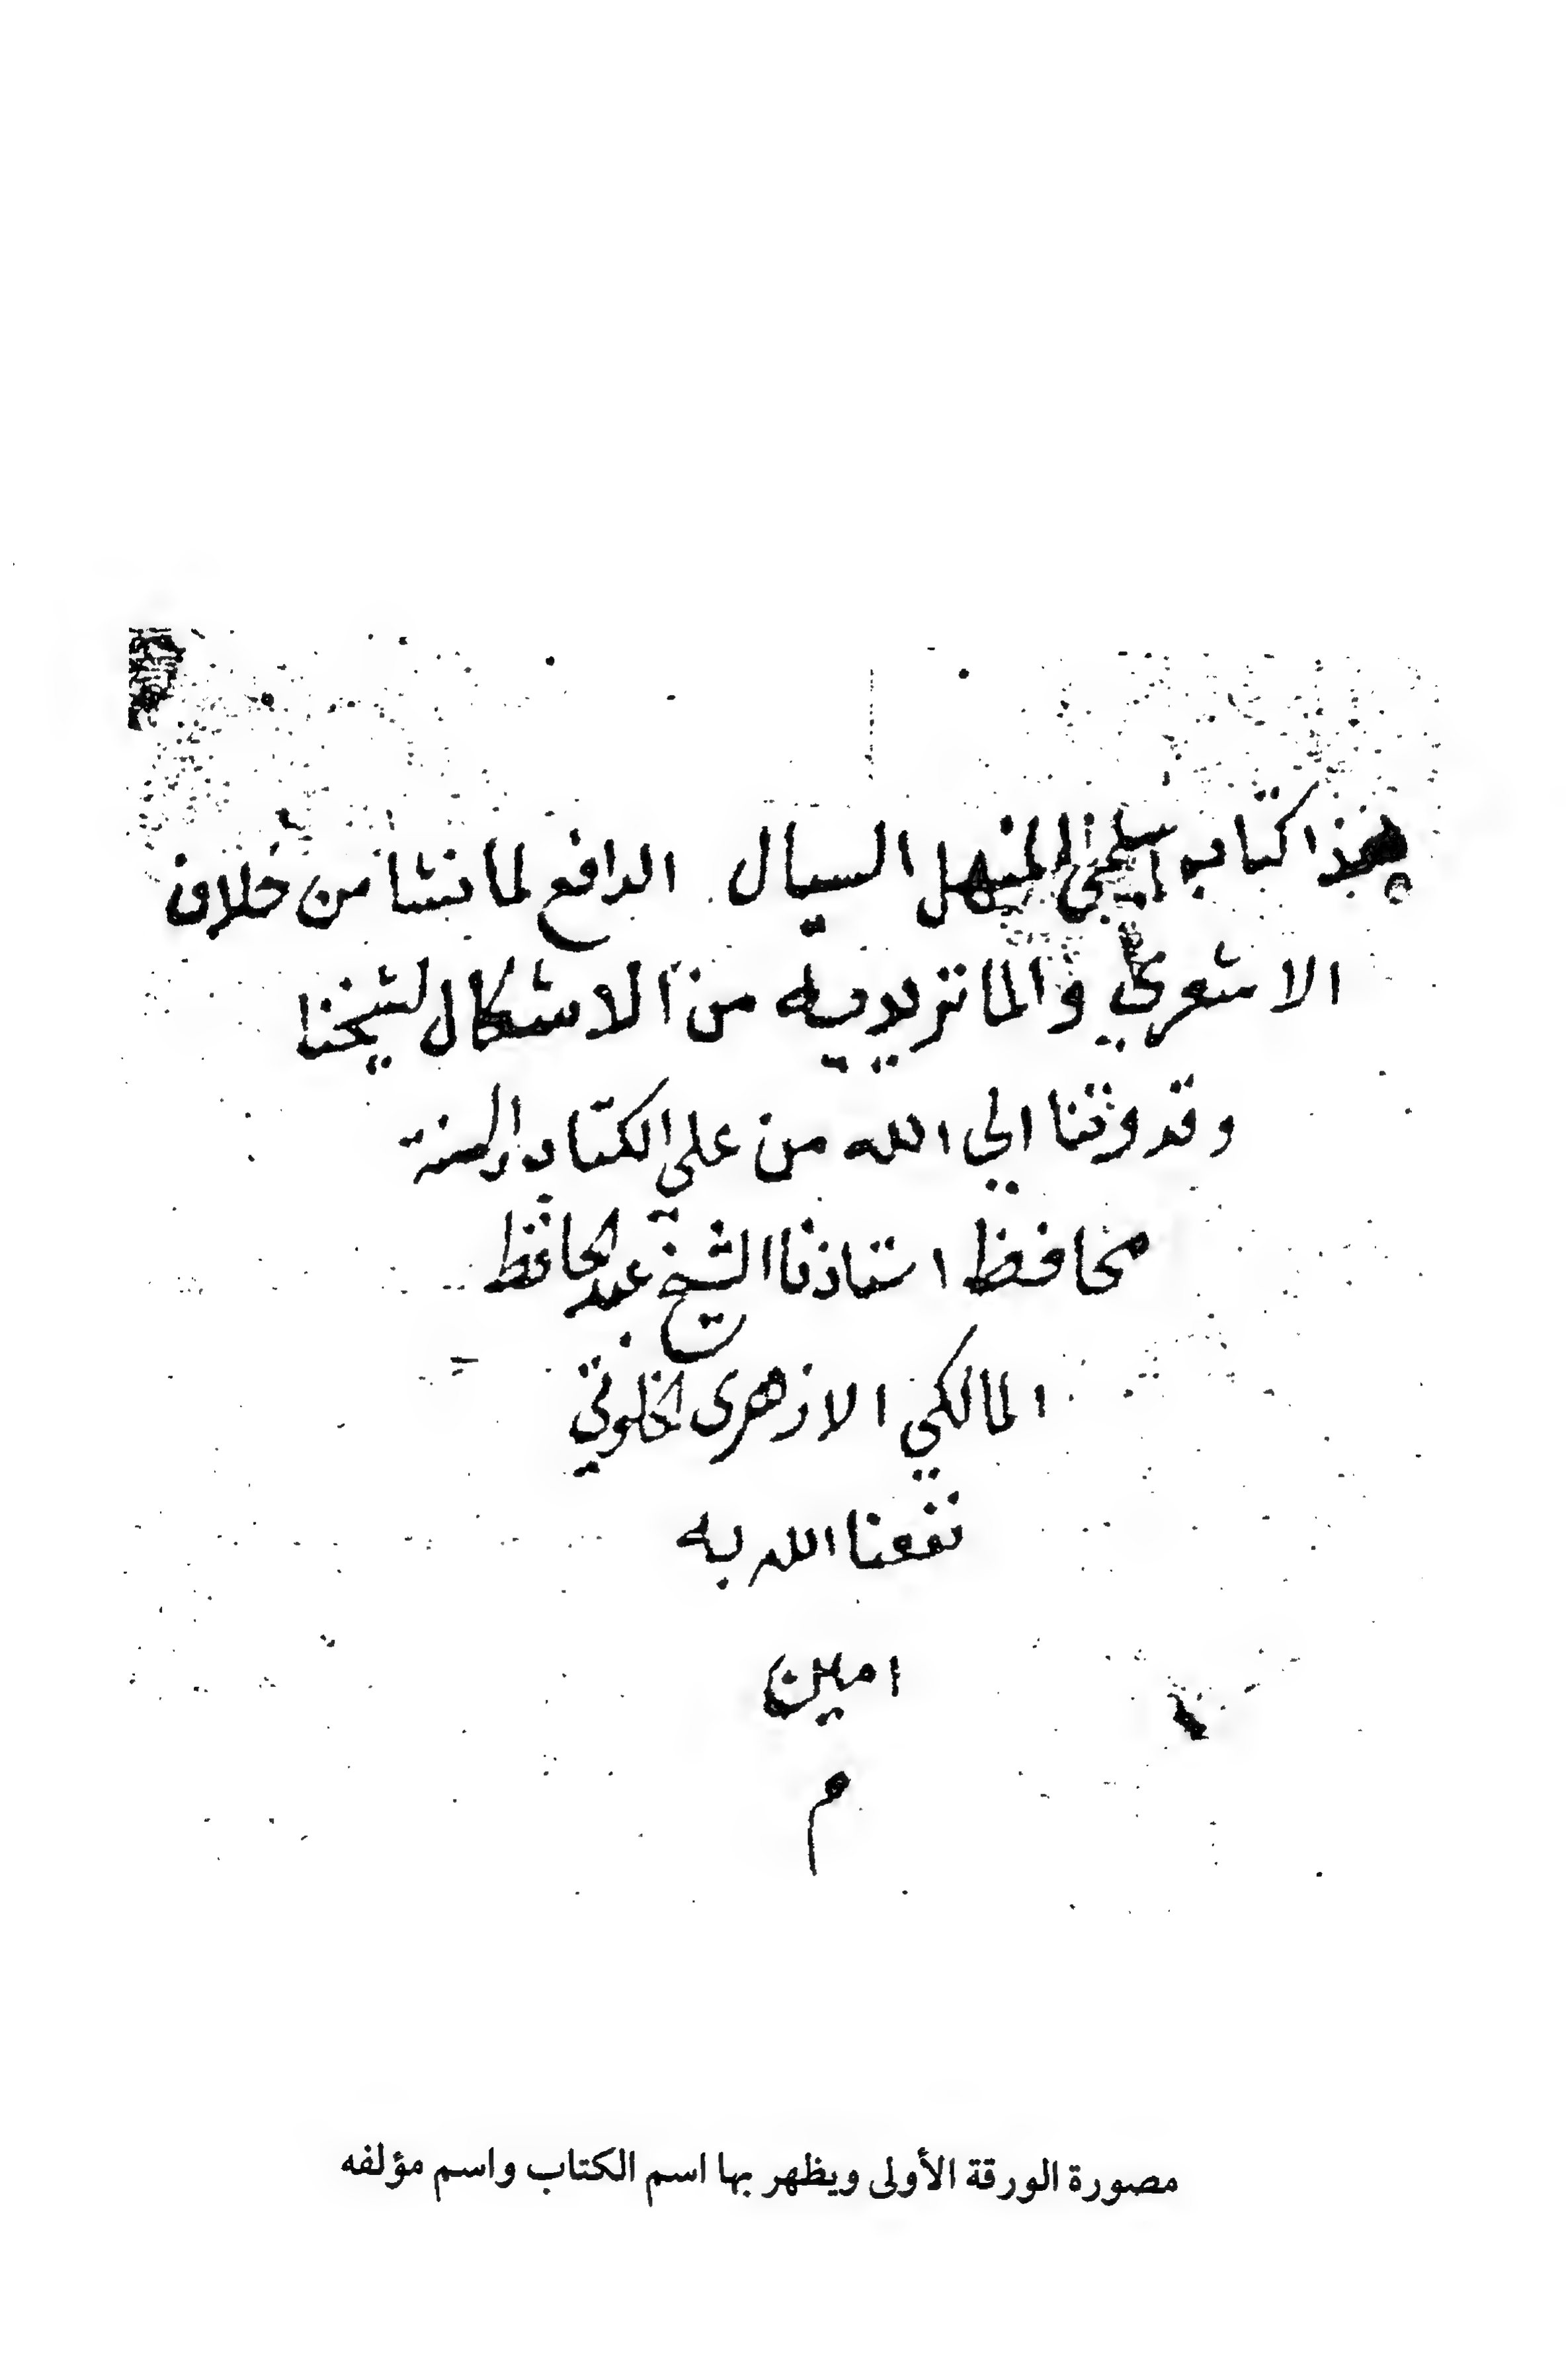 هذا كتاب المنهل السيال الدافع لما نشا من خلاف
الاشعري والماتريديه من الاشكال لشيخنا
وقدوتنا الي الله من علي الكتاب والسنة
محافظ استاذنا الشيخ عبد الحافظ
المالكي الازهرى الخلوتي
نفعنا الله به
امين
م
مصورة الورقة الأولى ويظهر بها اسم الكتاب واسم مؤلفه